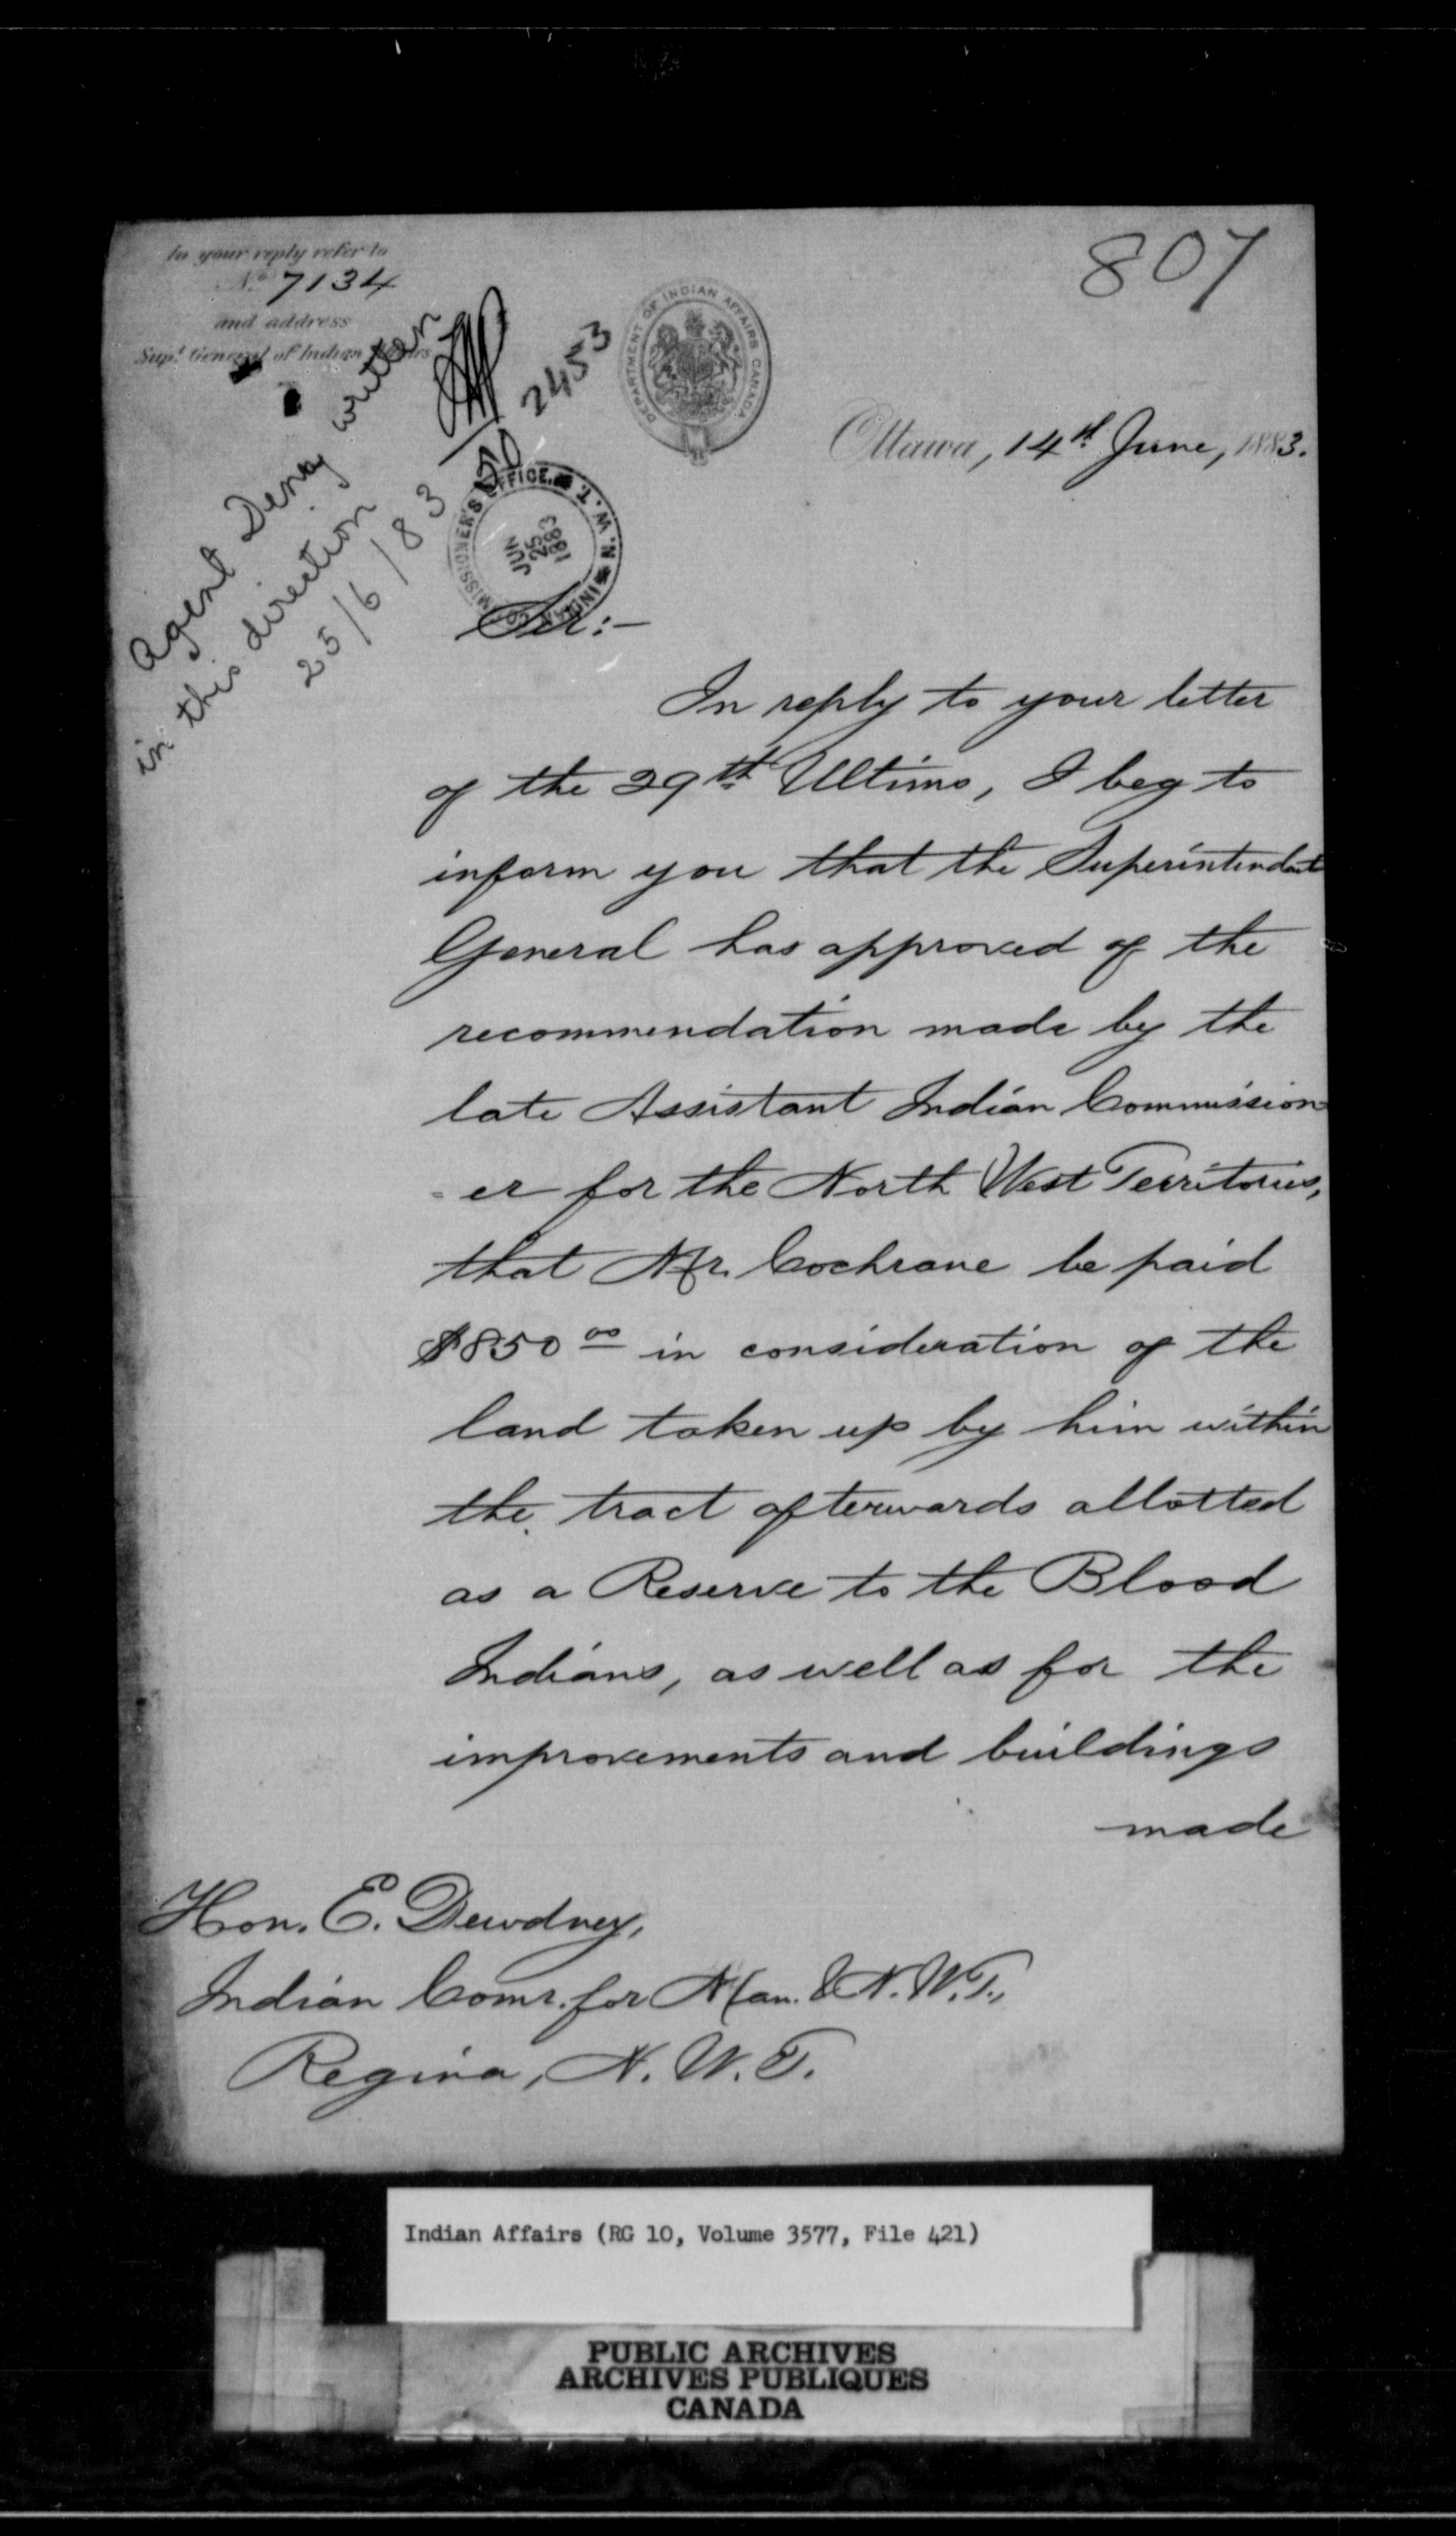 In your reply refer to
No. 7134
and address
Supt. General of Indian Affairs
807
DEPARTMENT OF INDIAN AFFAIRS CANADA
2453
Agent Deny written
in this direction
25/6/83
Ottawa, 14th June, 1883.
INDIAN COMMISSIONER'S OFFICE. N.W.T.
JUN
25
1883
Sir:-
In reply to your letter
of the 29th Ultimo, I beg to
inform you that the Superintendent
General has approved of the
recommendation made by the
late Assistant Indian Commission-
-er for the North West Territories,
that Mr. Cochrane be paid
$850 00 in consideration of the
land taken up by him within
the tract afterwards allotted
as a Reserve to the Blood
Indians, as well as for the
improvements and buildings
made
Hon. E. Dewdney,
Indian Comr. for Man. & N.W.T.,
Regina, N.W.T.
Indian Affairs (RG 10, Volume 3577, File 421)
PUBLIC ARCHIVES
ARCHIVES PUBLIQUES
CANADA